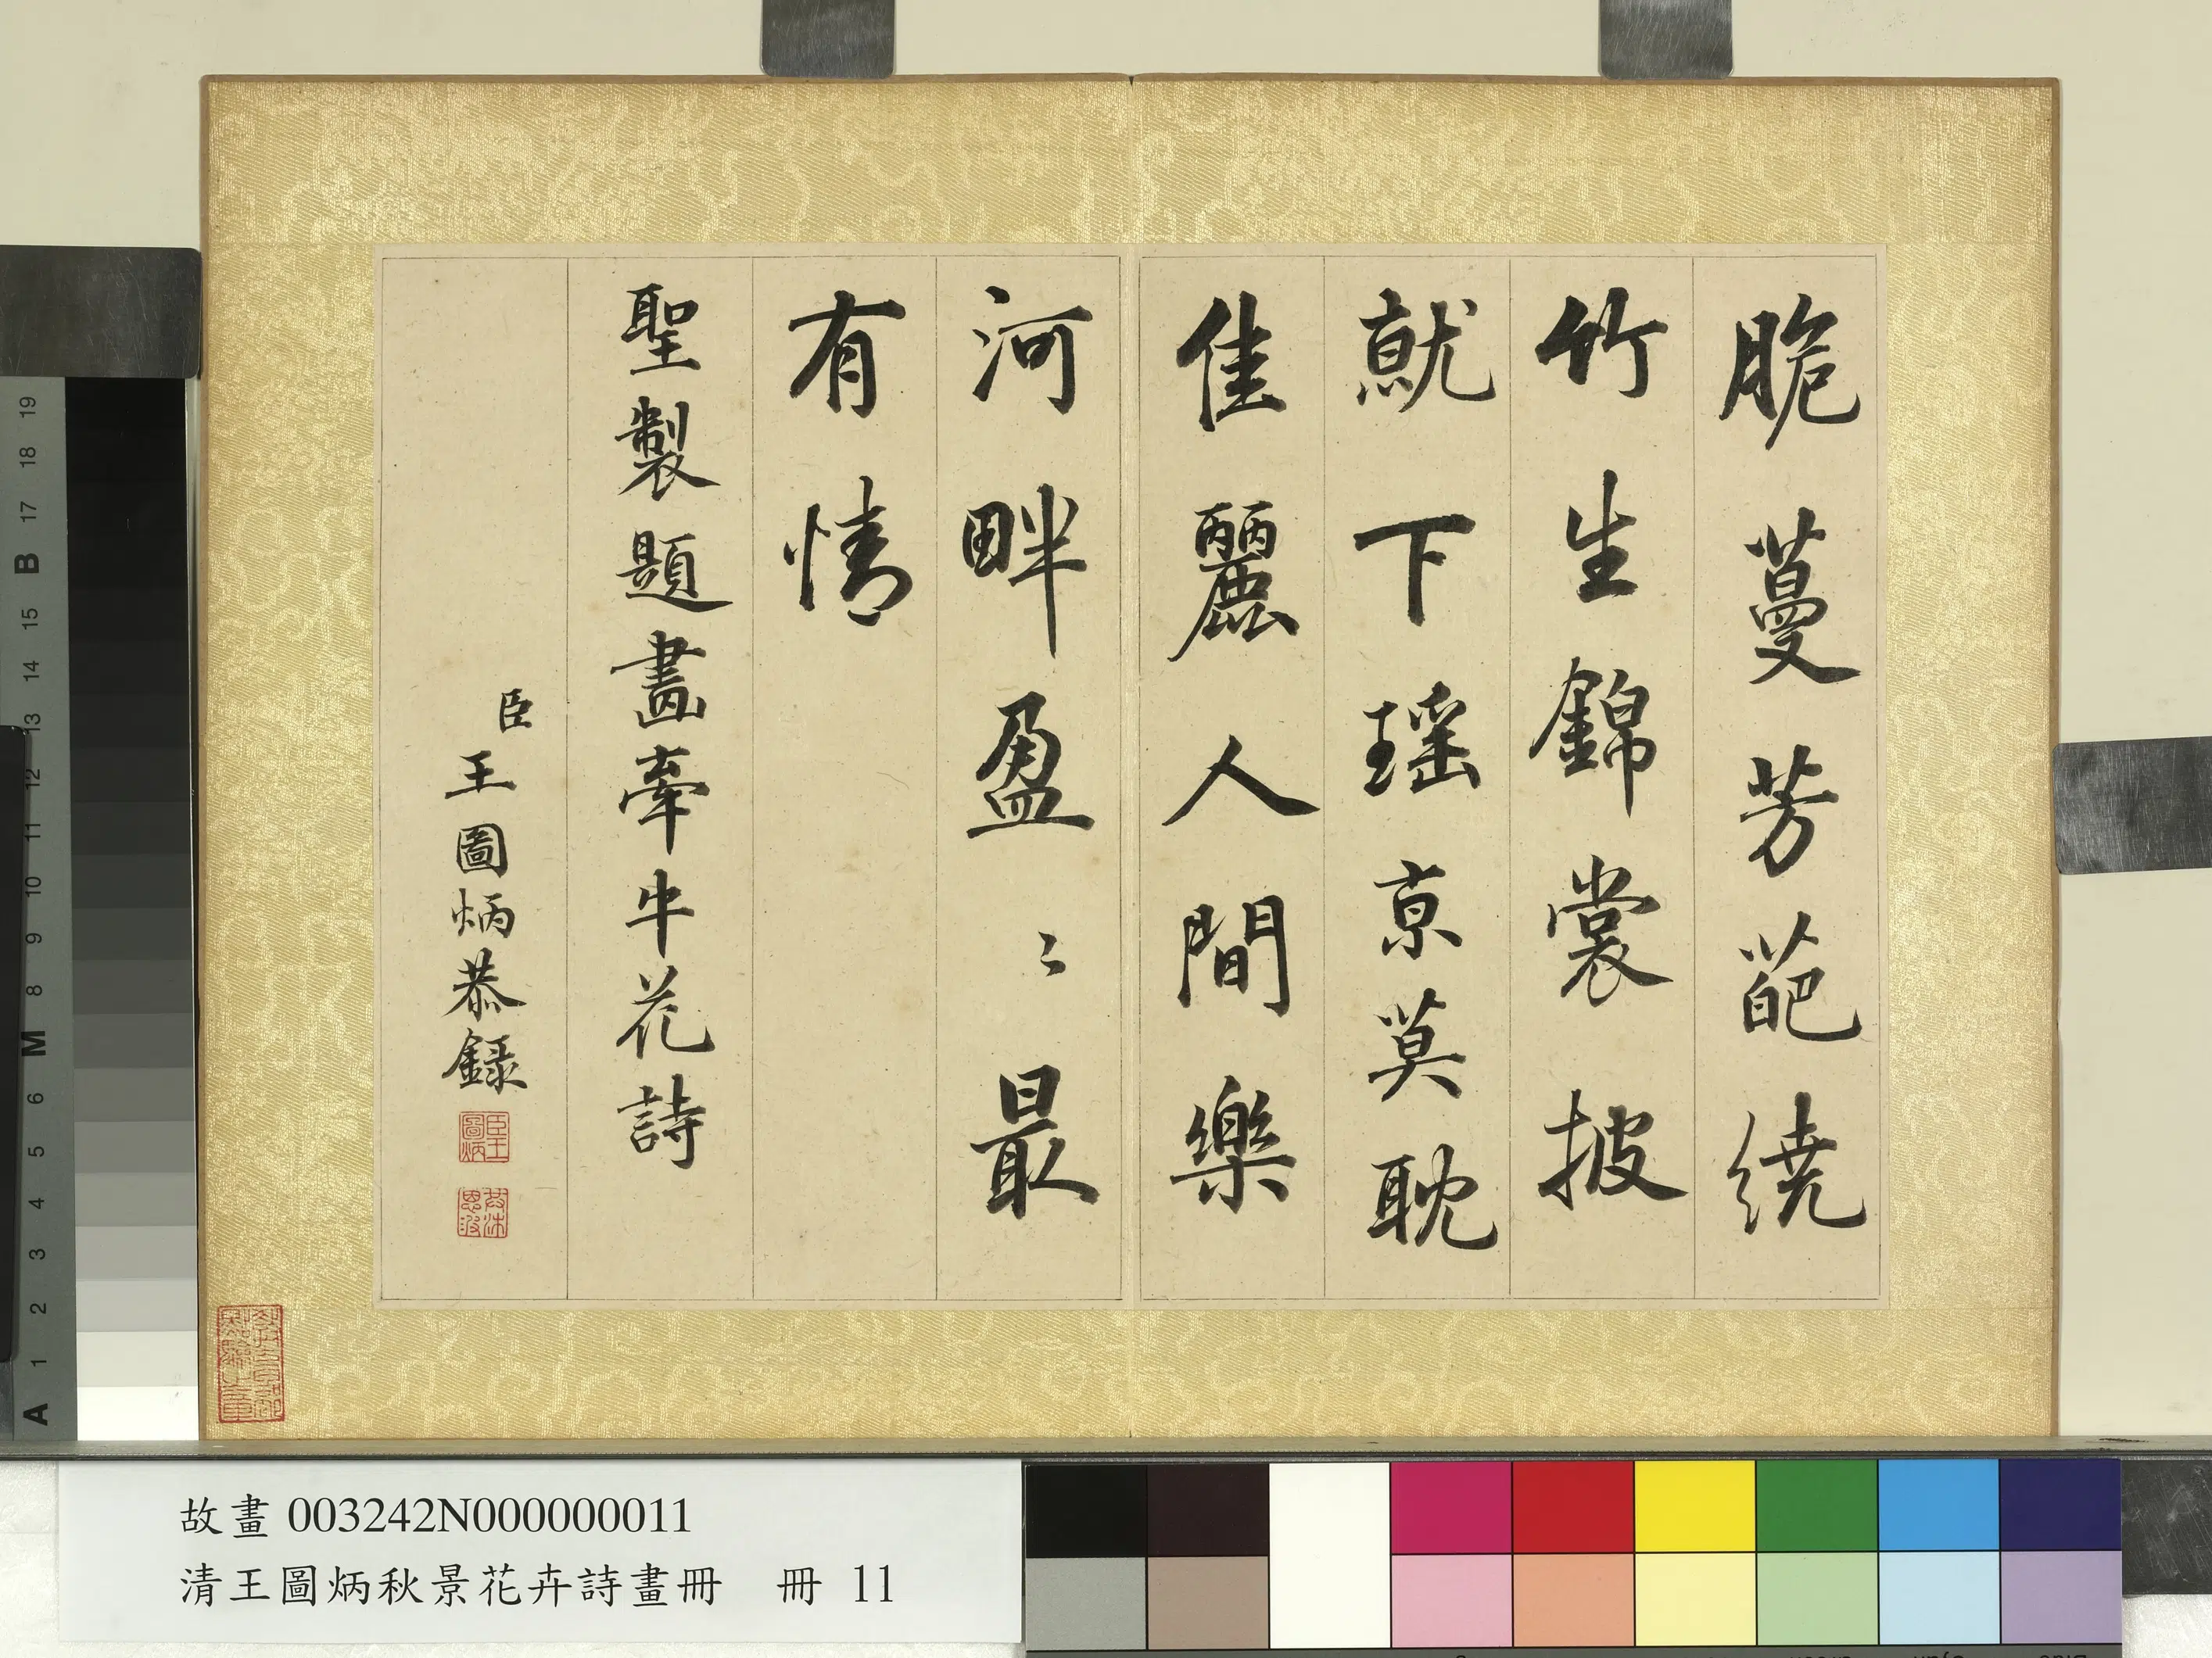 脆蔓芳葩繞
竹生錦裳披
就下瑶京莫耽
佳麗人間樂
河畔盈〻最
有情
聖製題畫牽牛花詩
臣王圖炳恭錄
臣王圖炳
故畫 003242N000000011
清王圖炳秋景花卉詩畫冊 冊 11
19
18
17
B
15
14
13
12
11
10
9
8
M
6
5
4
3
2
1
A